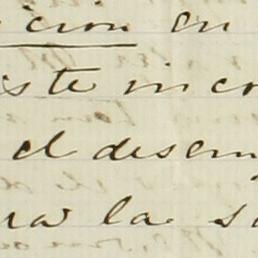 icion en
iste in co
el desem
ra la s